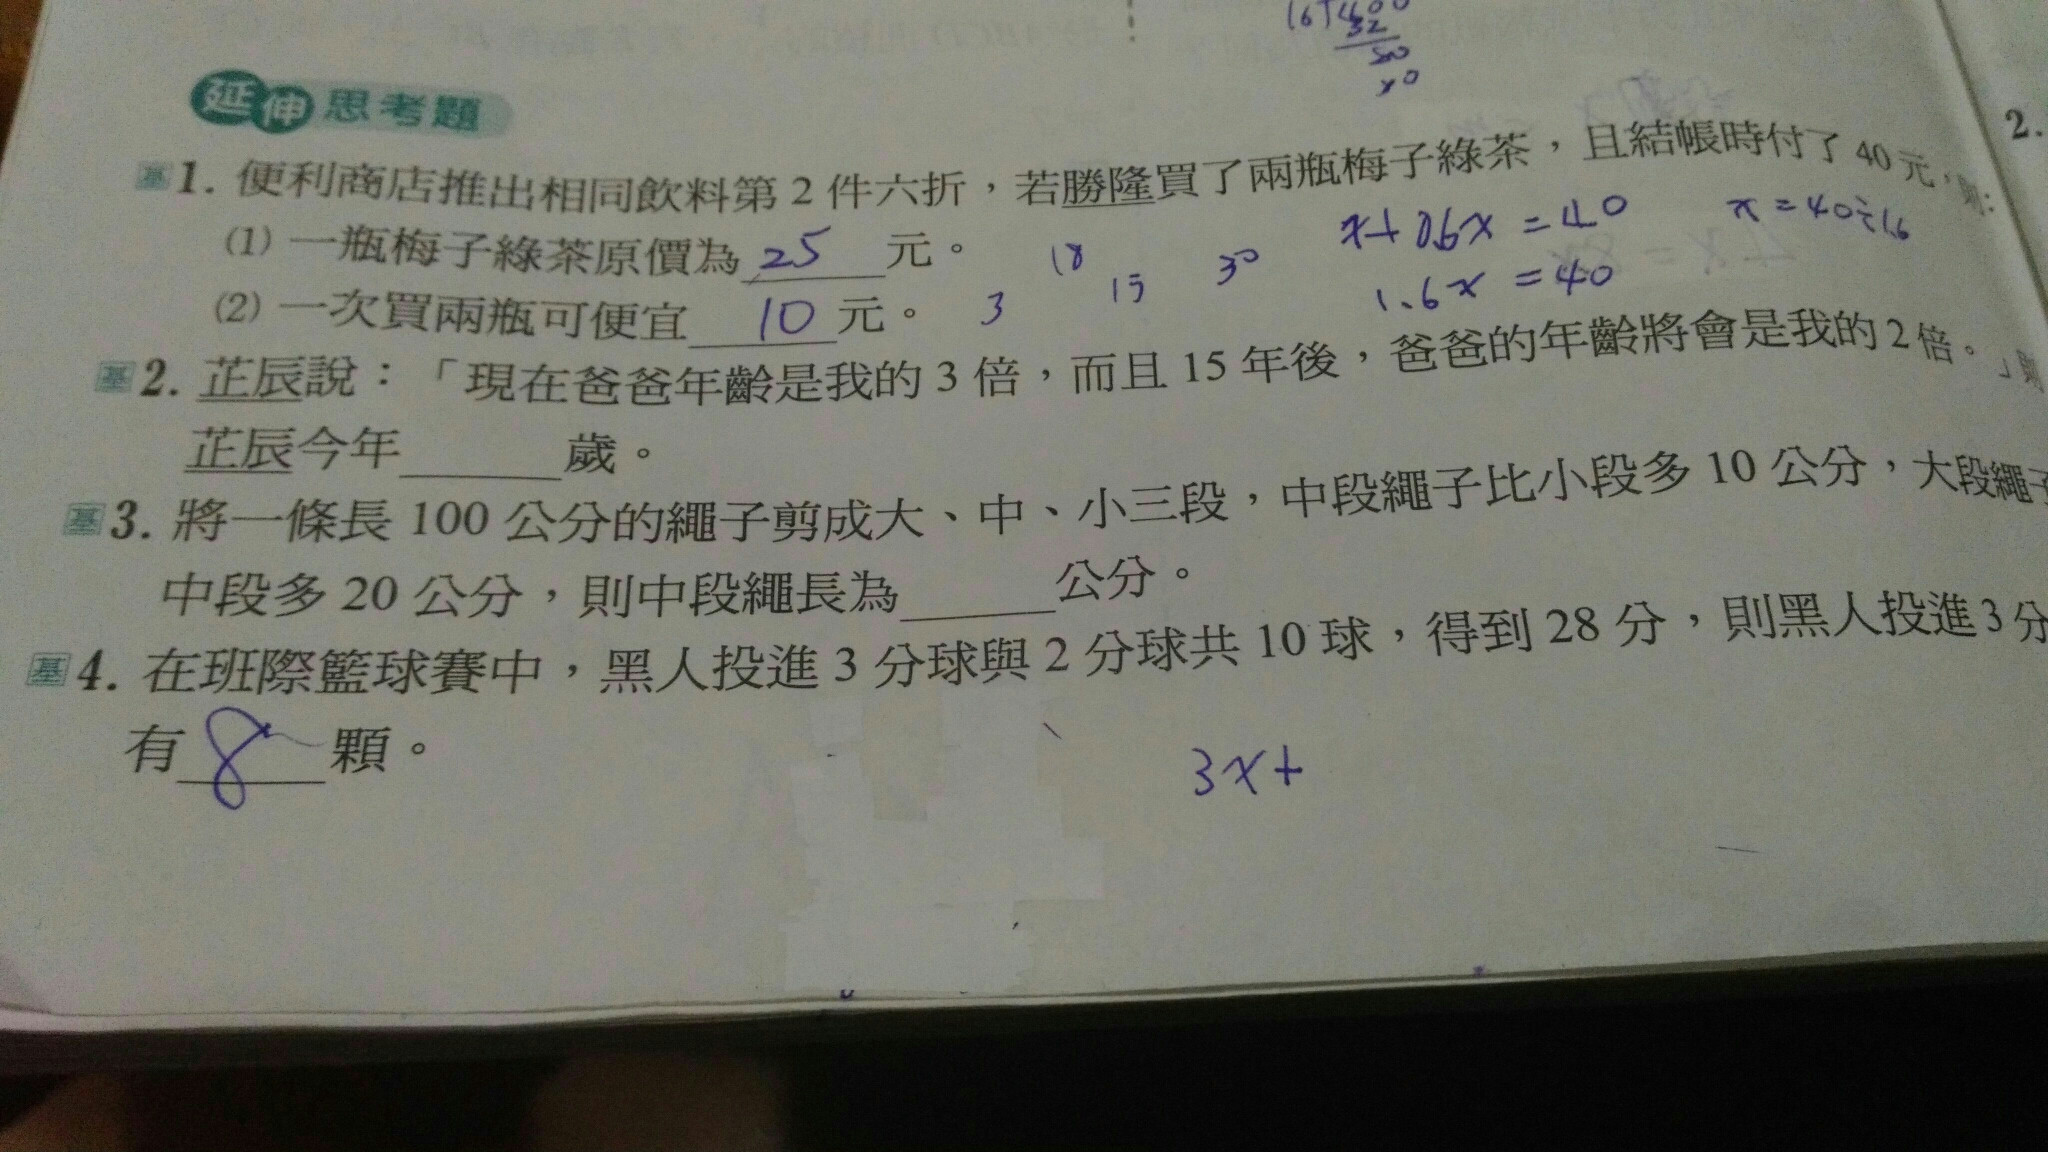 16)400
32
80
延伸思考題
基1. 便利商店推出相同飲料第 2 件六折，若勝隆買了兩瓶梅子綠茶，且結帳時付了 40 元，則：
(1) 一瓶梅子綠茶原價為 25 元。
x+0.6x=40
x=40÷1.6
18
15
30
1.6x=40
(2) 一次買兩瓶可便宜 10 元。
3
基2. 芷辰說：「現在爸爸年齡是我的 3 倍，而且 15 年後，爸爸的年齡將會是我的 2 倍。」則
芷辰今年 歲。
基3. 將一條長 100 公分的繩子剪成大、中、小三段，中段繩子比小段多 10 公分，大段繩子
中段多 20 公分，則中段繩長為 公分。
基4. 在班際籃球賽中，黑人投進 3 分球與 2 分球共 10 球，得到 28 分，則黑人投進 3 分
有 8 顆。
3x+
2.